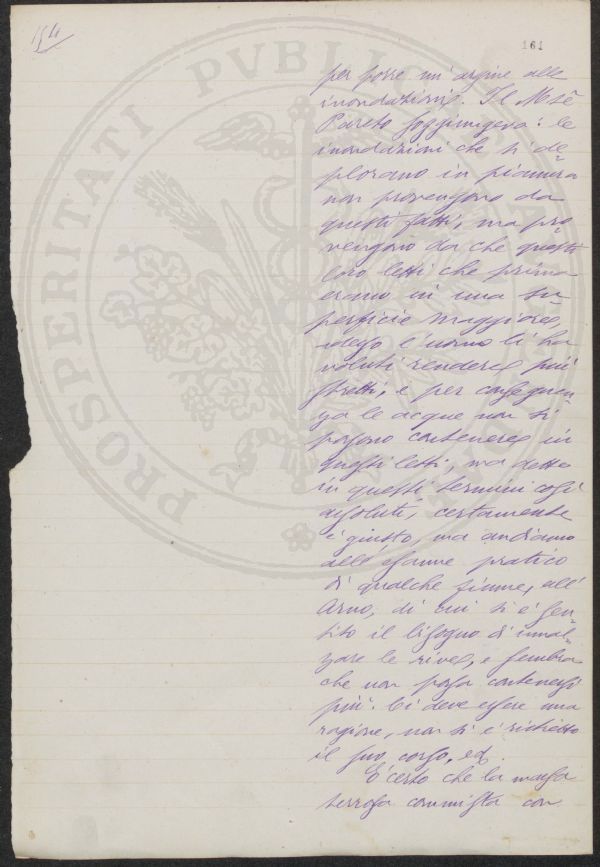 154
161
per porre un'argine alle
inondazioni. Il M.se
Pareto soggiungeva: le
inondazioni che si de-
plorano in pianura
non provengono da
questi fatti, ma pro-
vengono da che questi
loro letti che prima
erano in una su-
perficie maggiore,
adesso l'uomo li ha
voluti rendere più
stretti, e per conseguen-
za le acque non si
possono contenere in
questi letti; ma detto
in questi termini così
assoluti, certamente
è giusto, ma andiamo
all'esame pratico
di qualche fiume, all'
Arno, di cui si è sen-
tito il bisogno d'innal-
zare le rive, e sembra
che non possa contenersi
più. Ci deve essere una
ragione, non si è ristretto
il suo corso, ed.
È certo che la massa
terrosa commista con
PROSPERITATI PVBLICAE